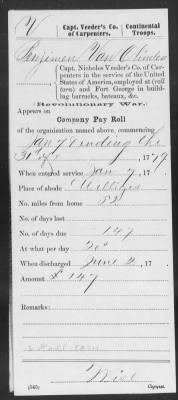 V
Capt. Veeder's Co. of Carpenters.
Continental Troops.
Benjimen Van
Capt. Nicholes Veeder's Co. of Carpenters in the service of the United States of America, employed at (roll torn) and Fort George in building barracks, bateaux, &c.
(Revolutionary War.)
Appears on
Company Pay Roll
of the organization named above, commencing
Jan 7 ending the
31 1779
When entered service Jan 7, 17
Place of abode
No. miles from home 52
No. days lost
No. days due 147
At what per day 20
When discharged June 2, 17
Amount £ 147
Remarks:
(545)
Copyist.